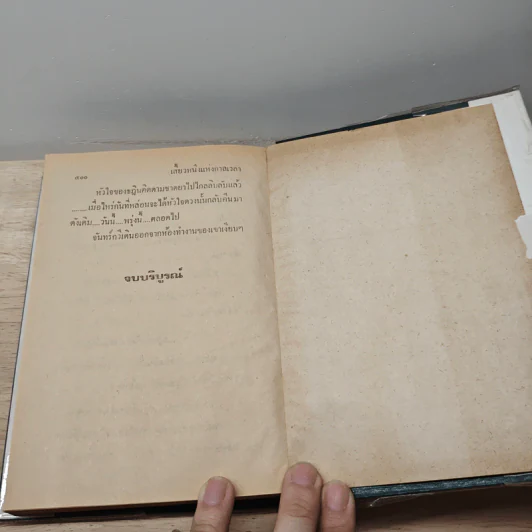 ๕๑๑
เสี้ยวหนึ่งแห่งกาลเวลา
หัวใจของหญิงคิดตามชาตยาไปไกลลิบลับแล้ว
....เมื่อไหร่กันที่หล่อนจะได้หัวใจดวงนั้นกลับคืนมา
ดังเดิม...วันนี้....พรุ่งนี้...ตลอดไป
จันทร์กวีเดินออกจากห้องทำงานของเขาเงียบๆ
จบบริบูรณ์